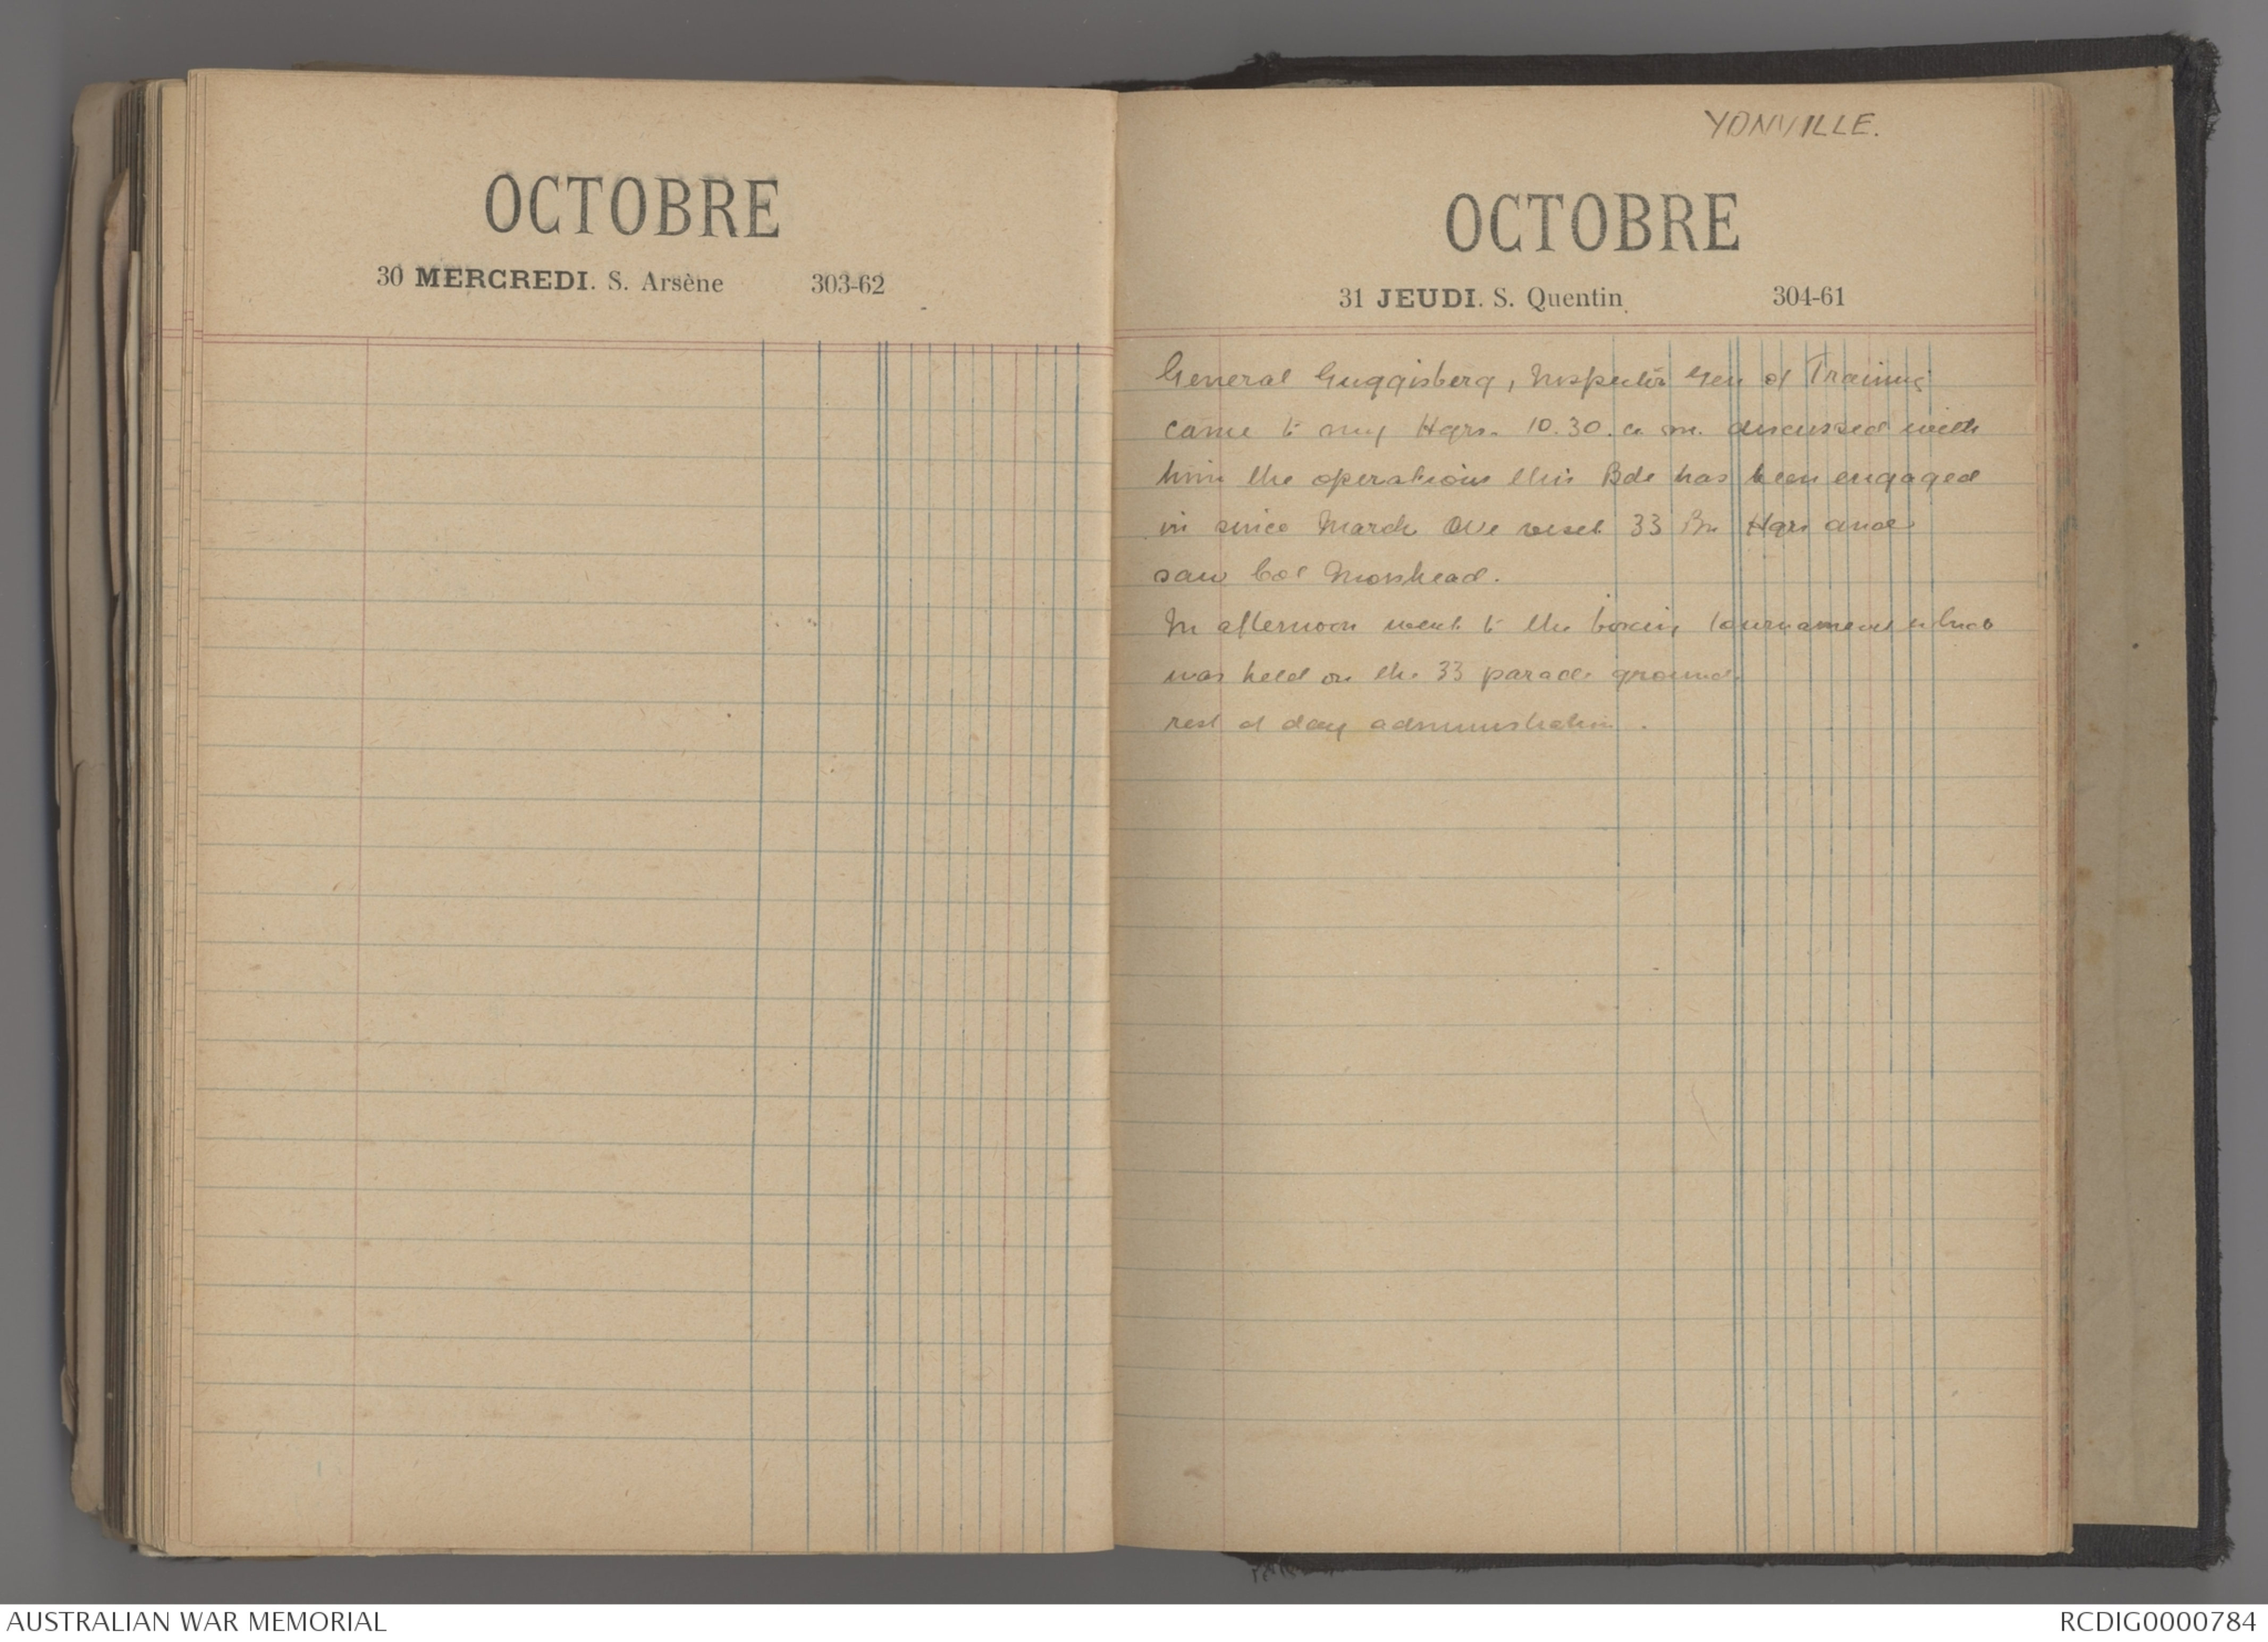 OCTOBRE
30 MERCREDI. S. Arsène 303-62
YONVILLE.
OCTOBRE
31 JEUDI. S. Quentin 304-61
General Guggisberg, Inspector Gen of Training
came to my Hqrs. 10.30. a.m. discussed with
him the operations this Bde has been engaged
in since March We visit 33 Bn Hqrs and
saw Col Morshead.
In afternoon went to the boxing tournament which
was held on the 33 parade ground.
rest of day administration.
AUSTRALIAN WAR MEMORIAL
RCDIG0000784